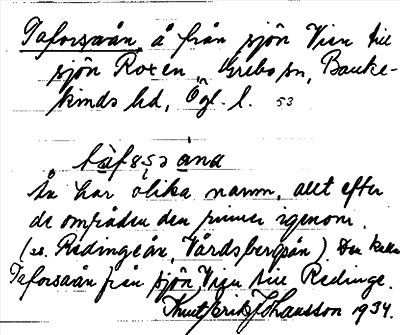 Taforsaån, å från sjön Vien till
sjön Roxen, Grebo sn, Banke-
kinds hd, Ögl. l. 53
Ån har olika namn, allt efter
de områden den rinner igenom.
(ss. Redingeån, Vårdsbergsån). Den kallas
Taforsaån från sjön Vien till Redinge.
Knut Erik Johansson 1934.